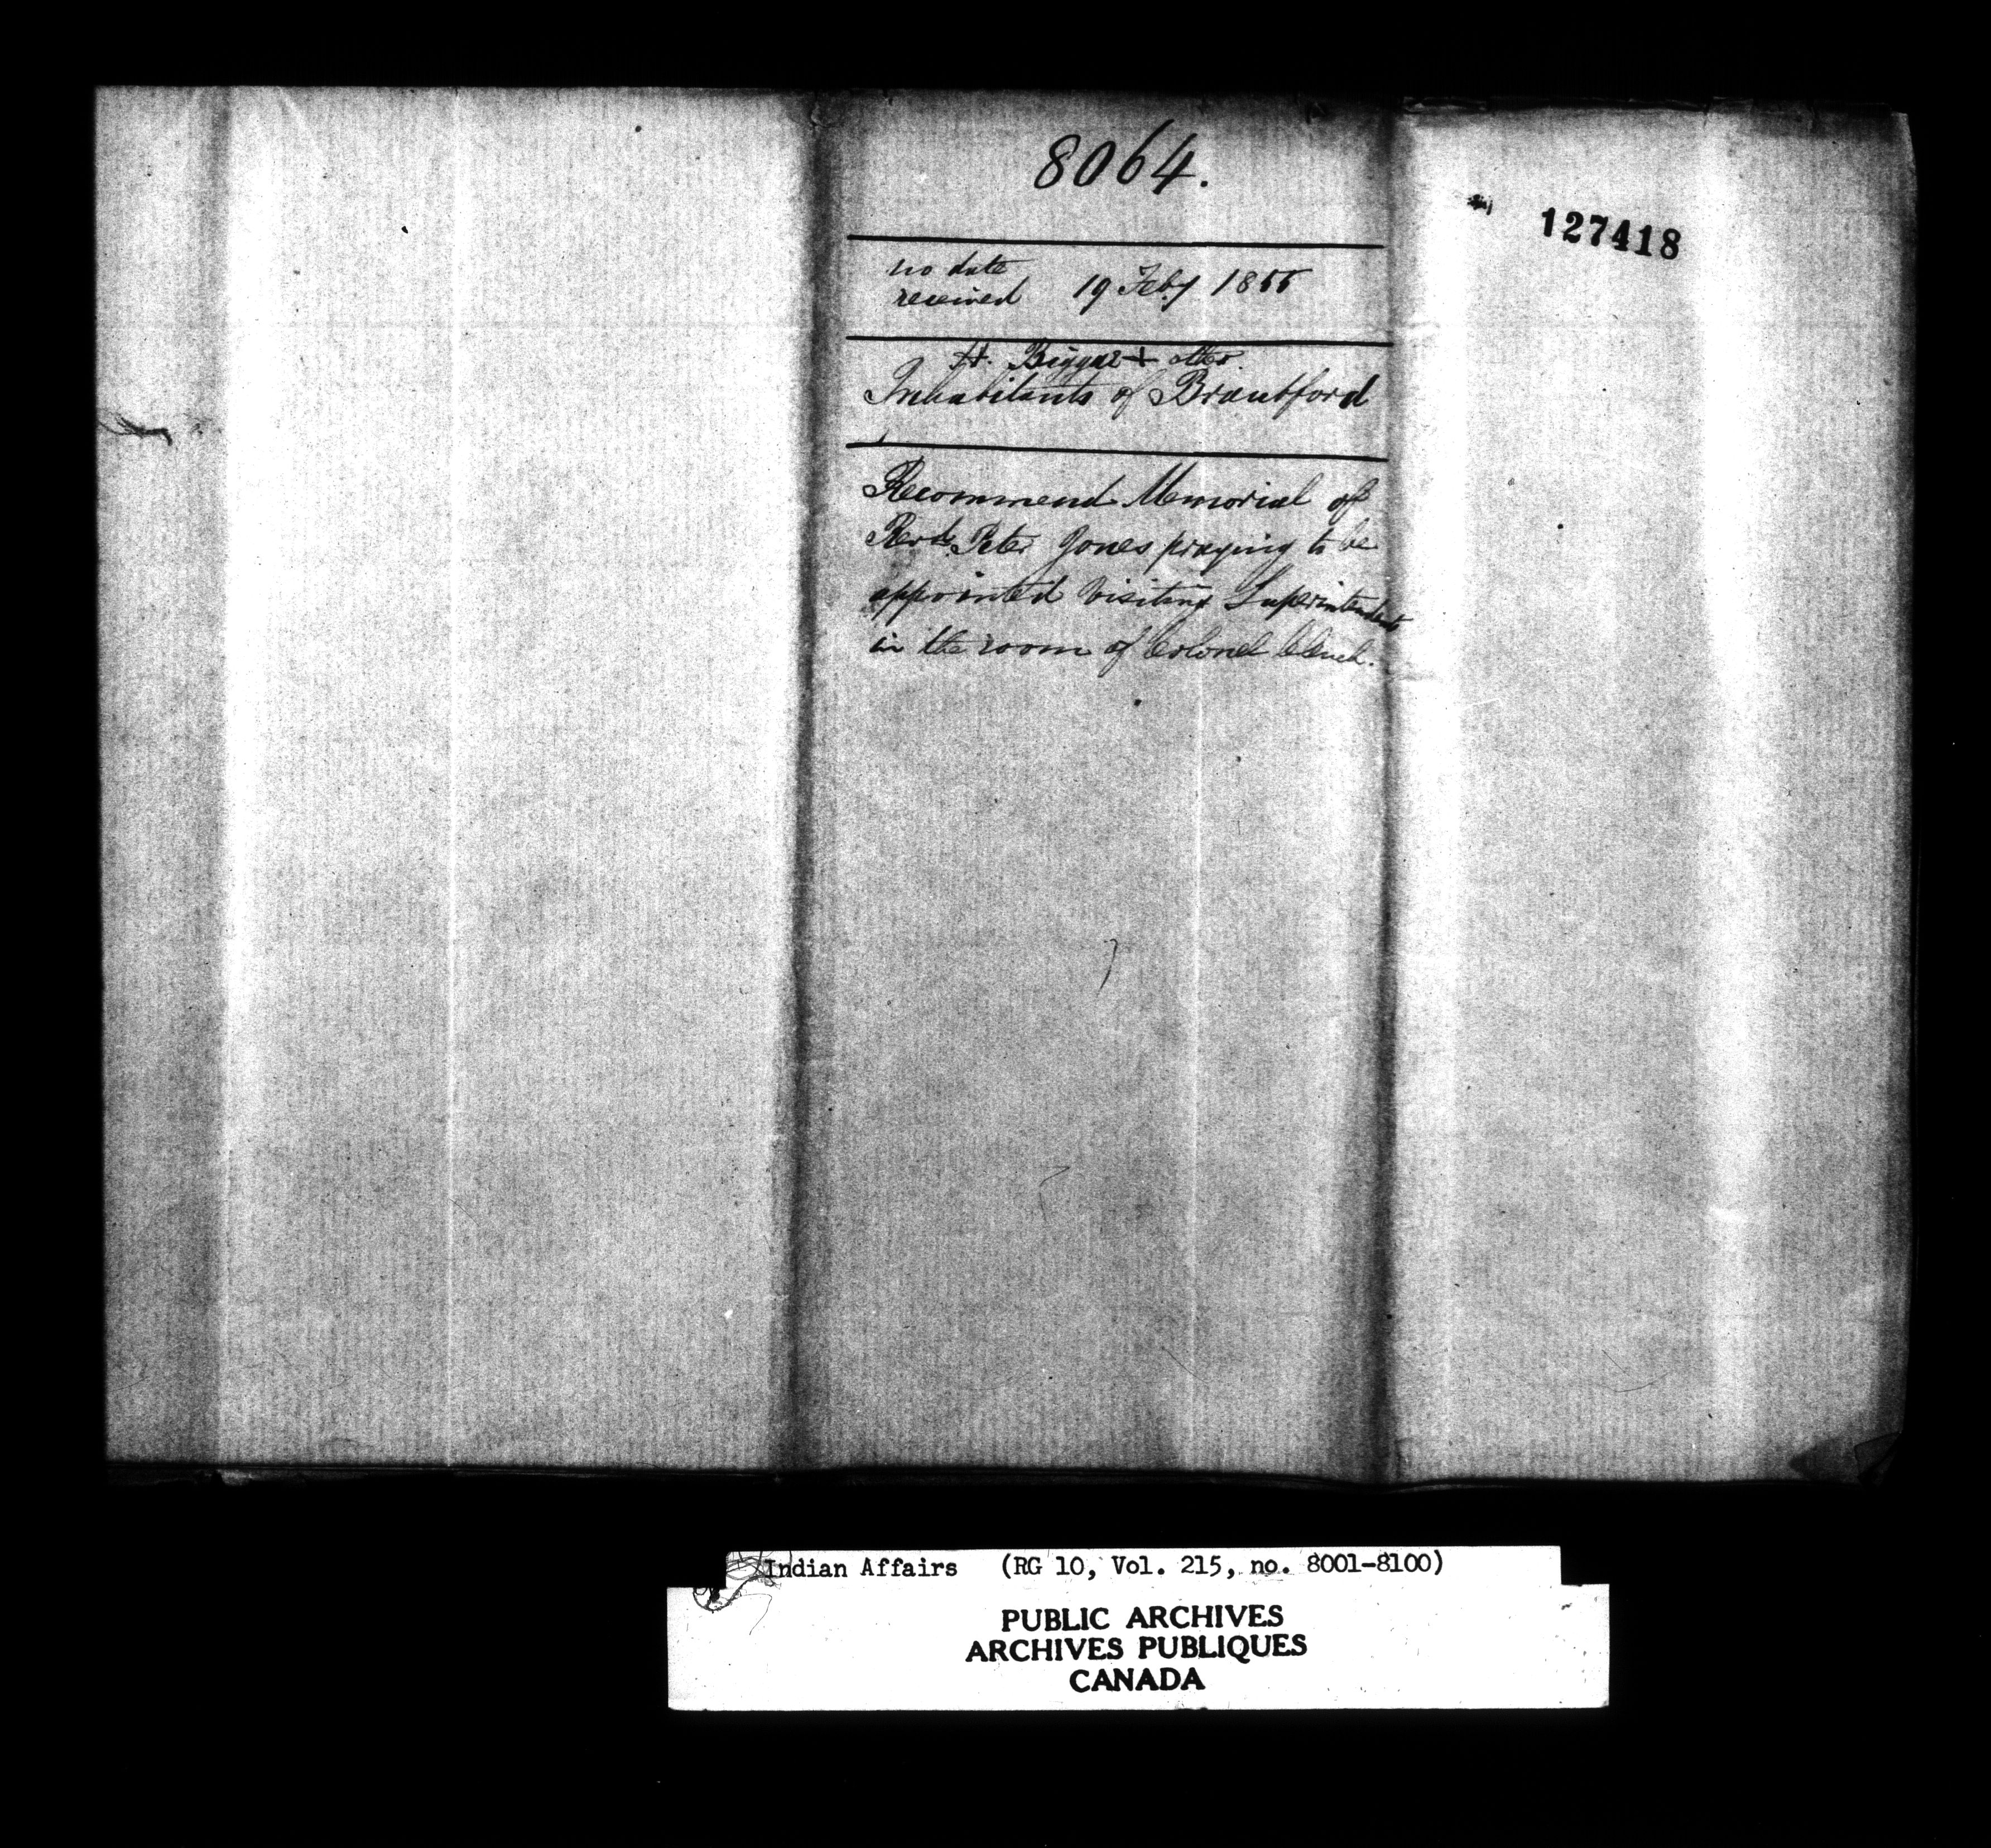 8064.
127418
no date
received 19 Feby 1855
H. Biggar + others
Inhabitants of Brantford
Recommend Memorial of
Revd. Peter Jones praying to be
appointed Visiting Superintendent
in the room of Colonel Clench.
Indian Affairs (RG 10, Vol. 215, no. 8001-8100)
PUBLIC ARCHIVES
ARCHIVES PUBLIQUES
CANADA